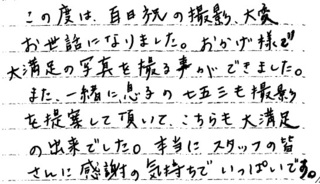 この度は、百日祝の撮影、大変
お世話になりました。おかげ様で
大満足の写真を撮る事ができました。
また、一緒に息子の七五三も撮影
を提案して頂いて、こちらも大満足
の出来でした。本当にスタッフの皆
さんに感謝の気持ちでいっぱいです。